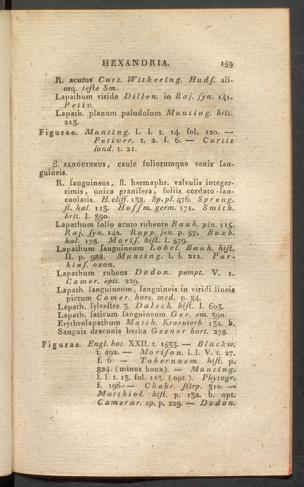 HEXANDRIA. 159
R. acutus Curt. Withering. Hudſ. ali-
orq. teſte Sm.
Lapathum viride Dillen. in Raj. ſyn. 141.
Petiv.
Lapath. planum paludoſum Munting. brit.
213.
Figurae. Munting. l. l. t. 14. fol. 120. —
Petiver. t. 2. f. 6. — Curtis
lond. t. 21.
β. SANGUINEUS, caule foliorumque venis ſan-
guineis.
R. ſanguineus, fl. hermaphr. valvulis integer-
rimis, unica granifera; foliis cordato-lan-
ceolatis. H. cliff. 138. Sp. pl. 476. Spreng.
fl. hal. 113. Hoffm. germ. 171. Smith.
brit. I. 390.
Lapathum folio acuto rubente Bauh. pin. 115.
Raj. ſyn. 142. Rupp. jen. p. 57. Buxb.
hal. 178. Moriſ. hiſt. I. 579.
Lapathum ſanguineum Lobel. Bauh. hiſt.
II. p. 988. Munting. l. l. 212. Par-
kinſ. oxon.
Lapathum rubens Dodon. pempt. V. 1.
Camer. epit. 229.
Lapath. ſanguineum, ſanguineis in viridi lineis
pictum Camer. hort. med. p. 84.
Lapath. ſylveſtre 3. Dalech. hiſt. I. 603.
Lapath. ſativum ſanguineum Ger. em. 390.
Erythrolapathum Matth. Kraeuterb. 132. b.
Sanguis draconis herba Gesner hort. 278.
Figurae. Engl. bot. XXII. t. 1533. — Blackw.
t. 492. — Moriſon. l. l. V. t. 27.
f. 6. — Tabernaem. hiſt. p.
824. (minus bona). — Munting.
l. l. t. 13. fol. 115. (opt.). Phytogr.
f. 196. — Chabr. ſtirp. 310. —
Matthiol. hiſt. p. 132. b. opt.
Camerar. ep. p. 229. — Dodon.